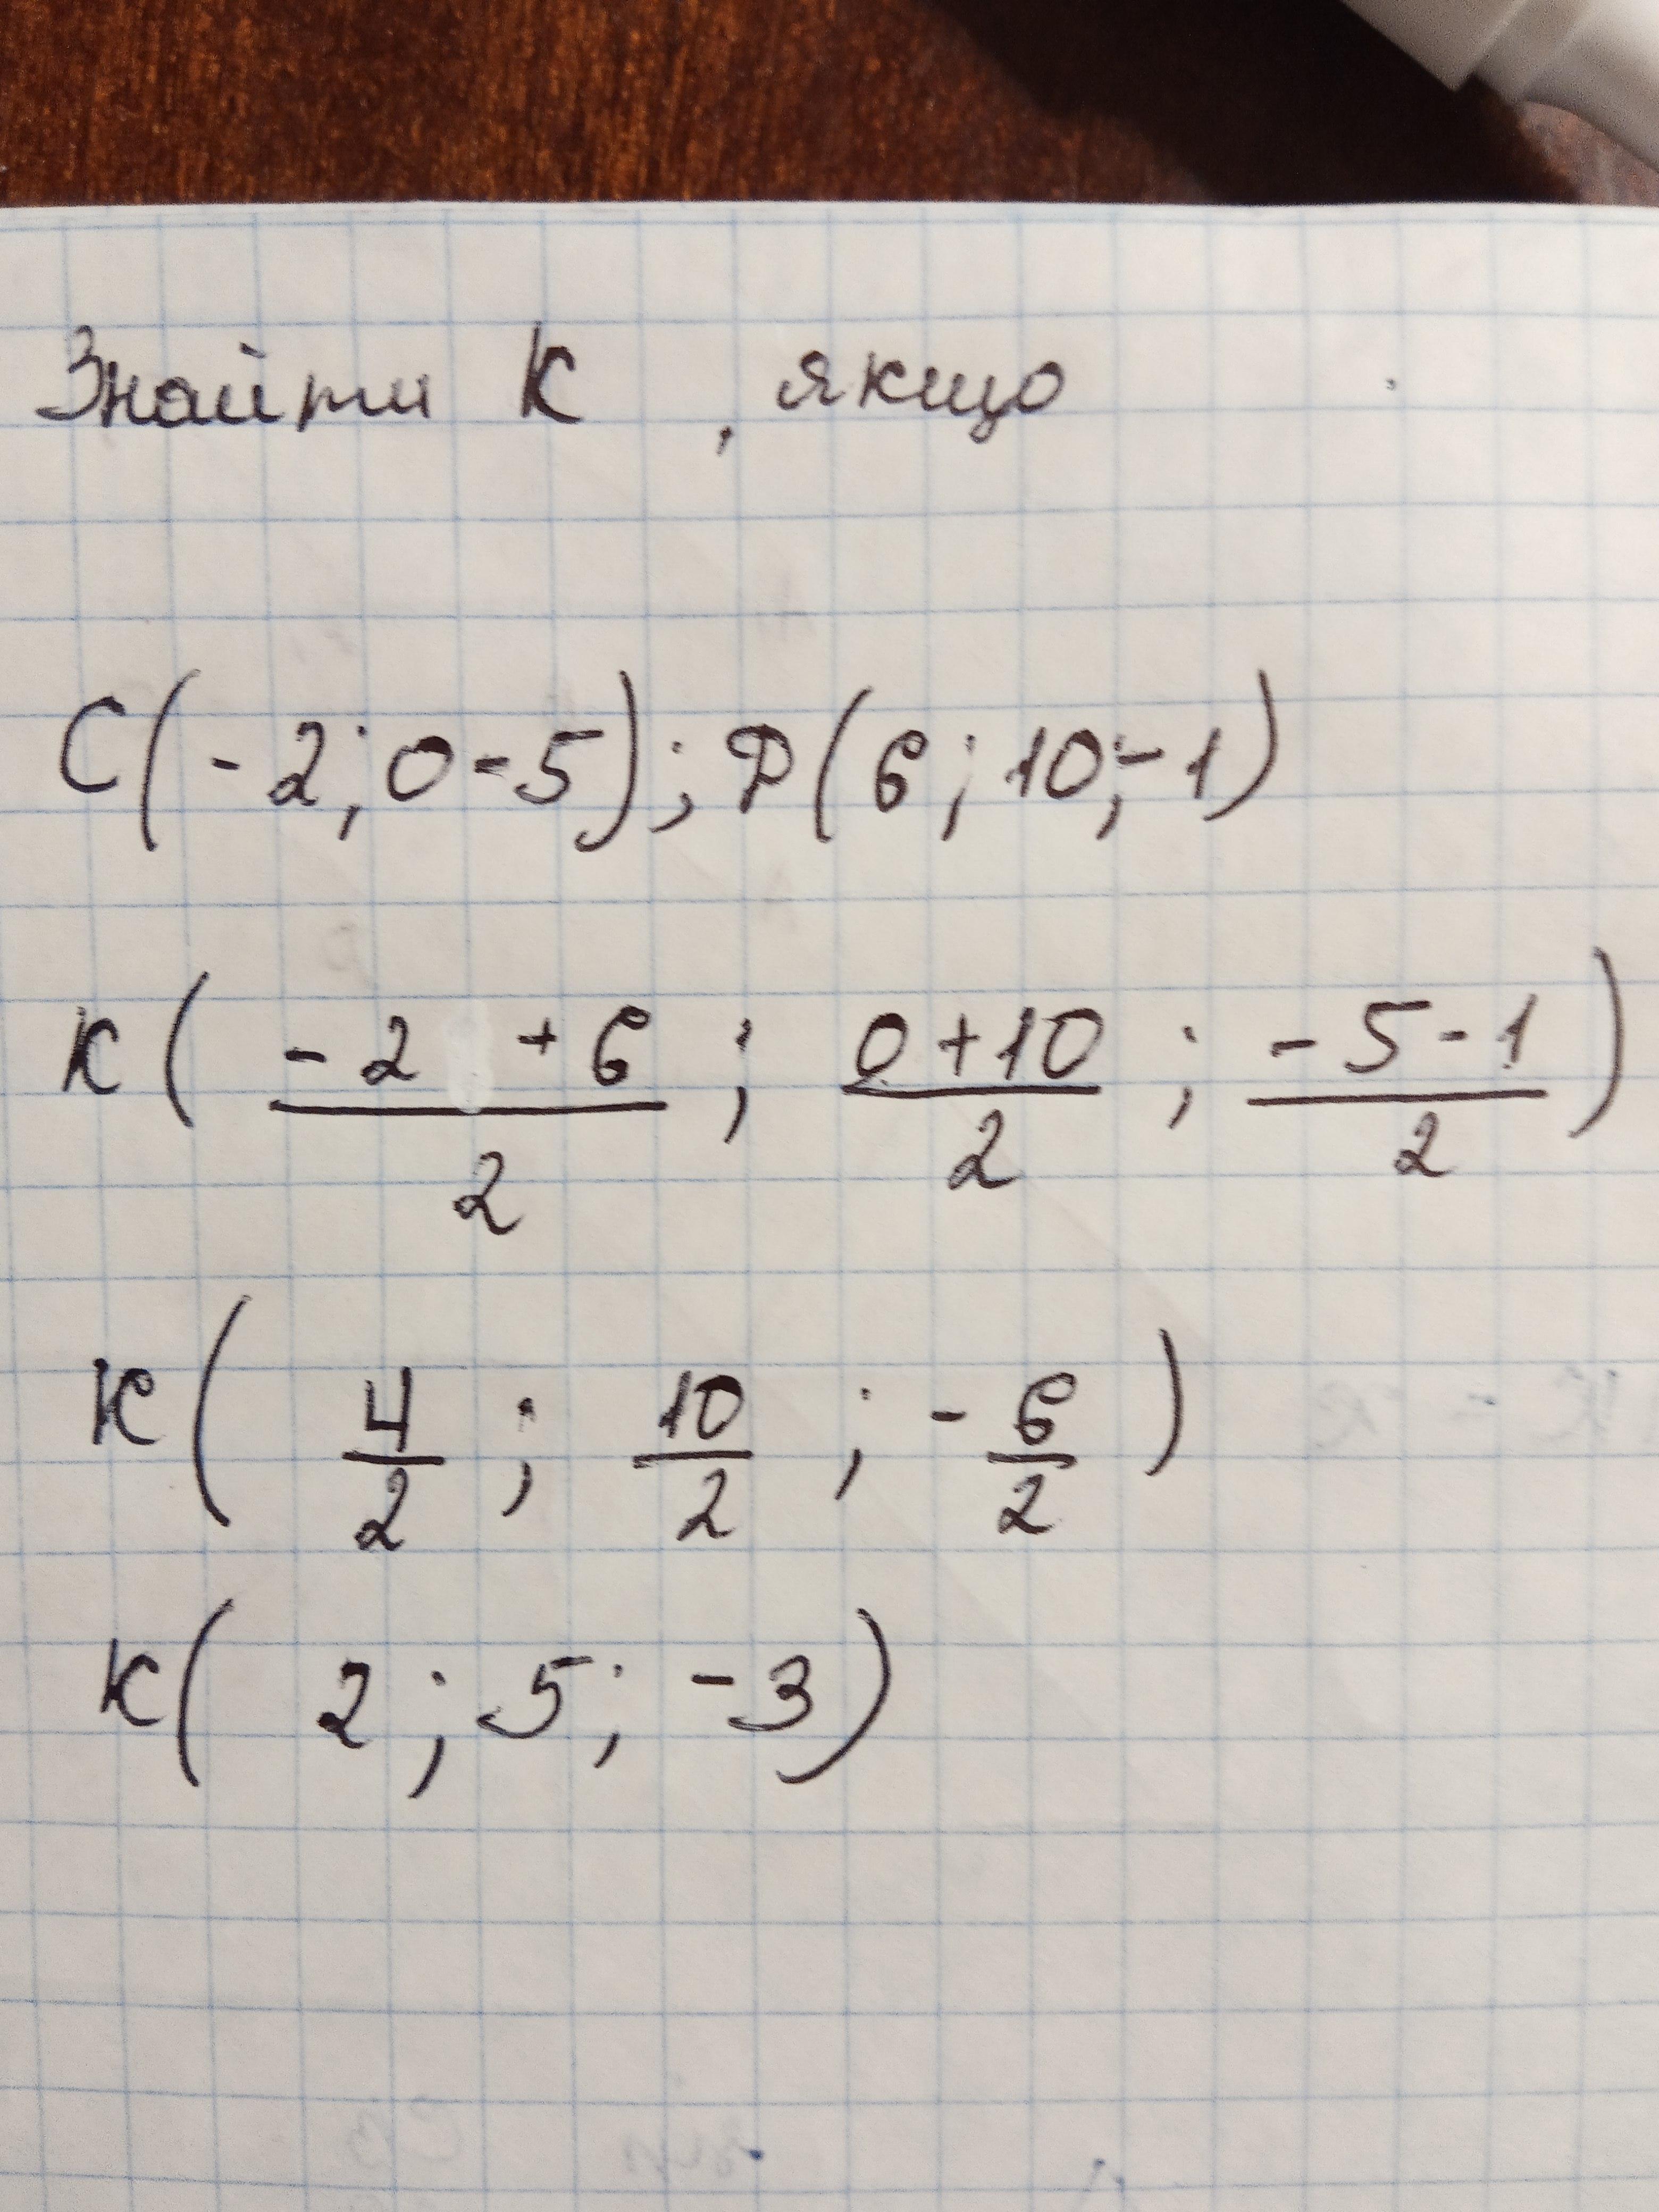 Знайти К , якщо
С(-2; 0-5); D(6; 10; -1)
К( (-2 +6)/2 ; (0+10)/2 ; (-5-1)/2 )
К( 4/2 ; 10/2 ; -6/2 )
К( 2; 5; -3)